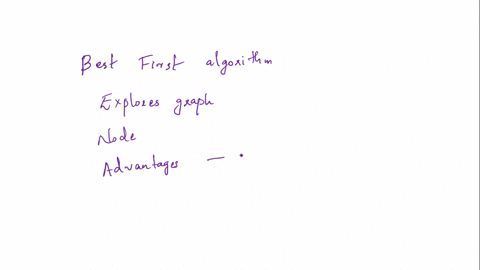 Best First algorithm
Explores graph
Node
Advantages —